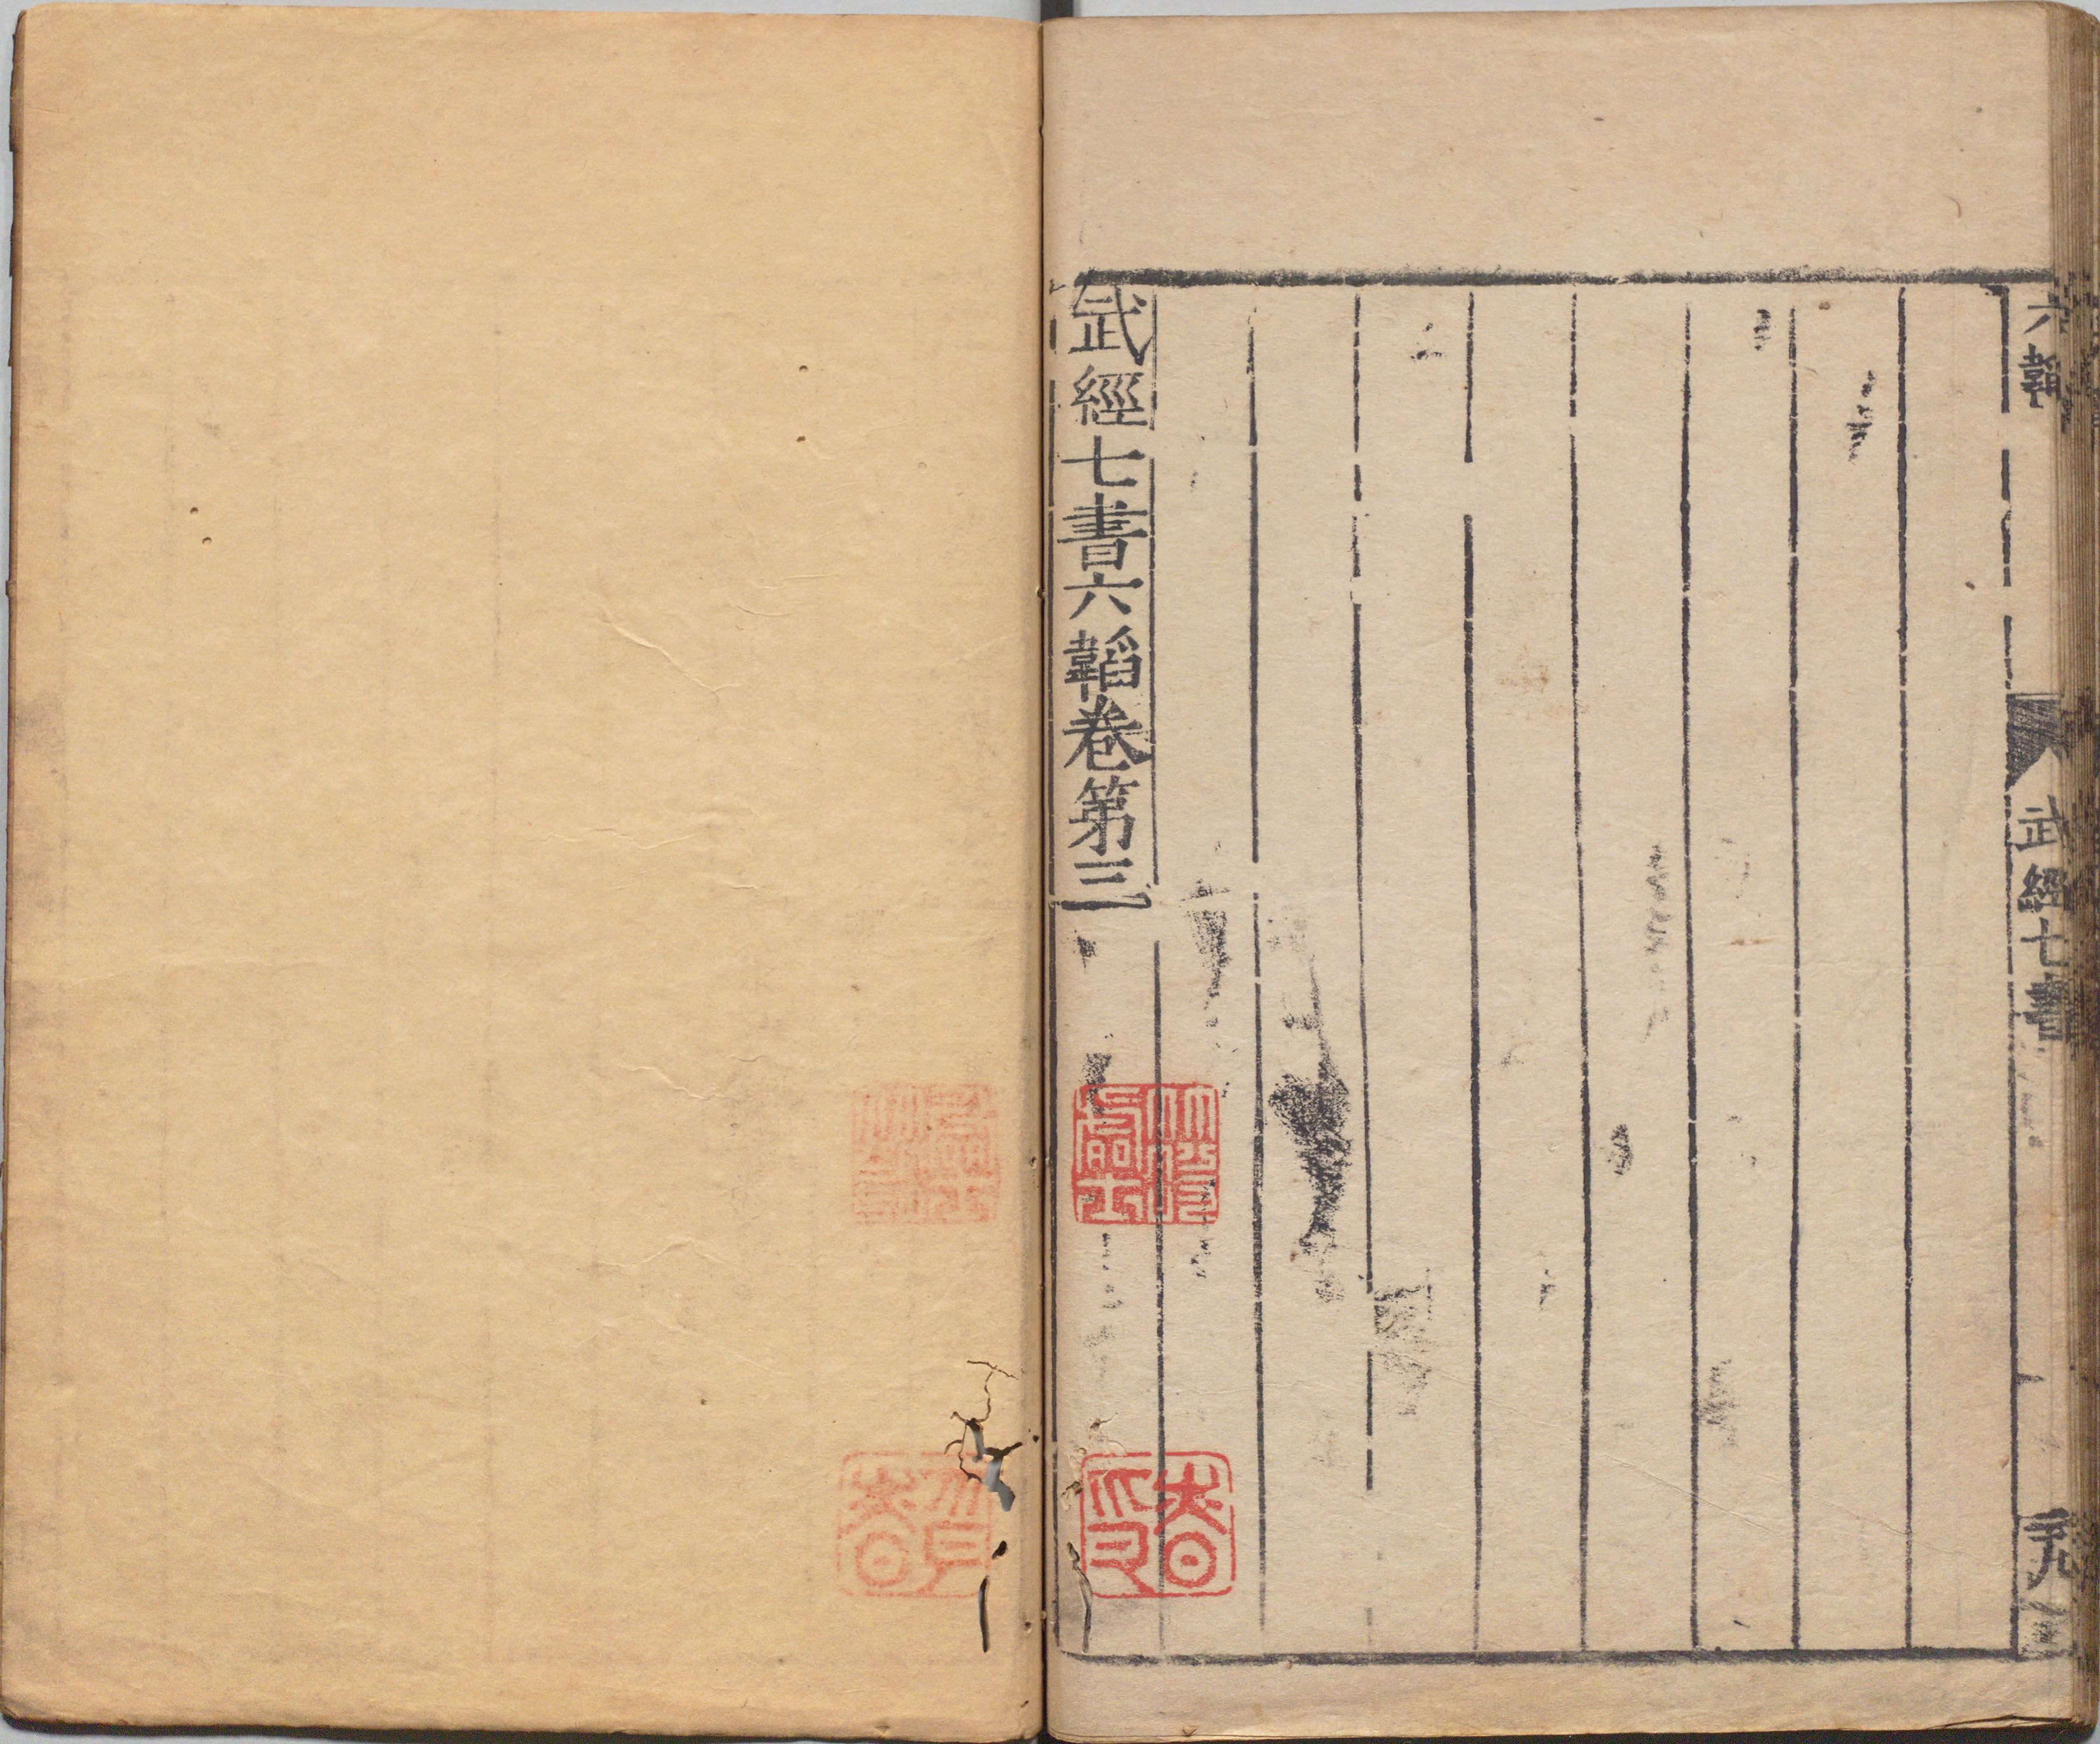 六韜
武經七書
武經七書六韜卷第三